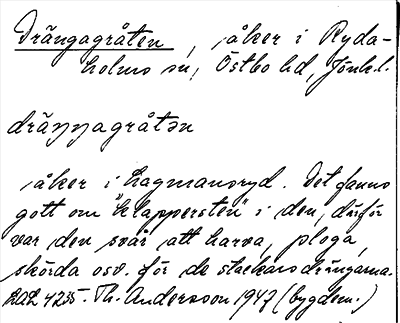 Drängagråten, åker i Ryda-
holms sn, Östbo hd, Jönk.l.
dräŋŋagråtən
åker i Hagmansryd. Det fanns
gott om "klappersten" i den, därför
var den svår att harva, ploga,
skörda osv. för de stackars drängarna.
Th. Andersson 1947 (bygdem.)